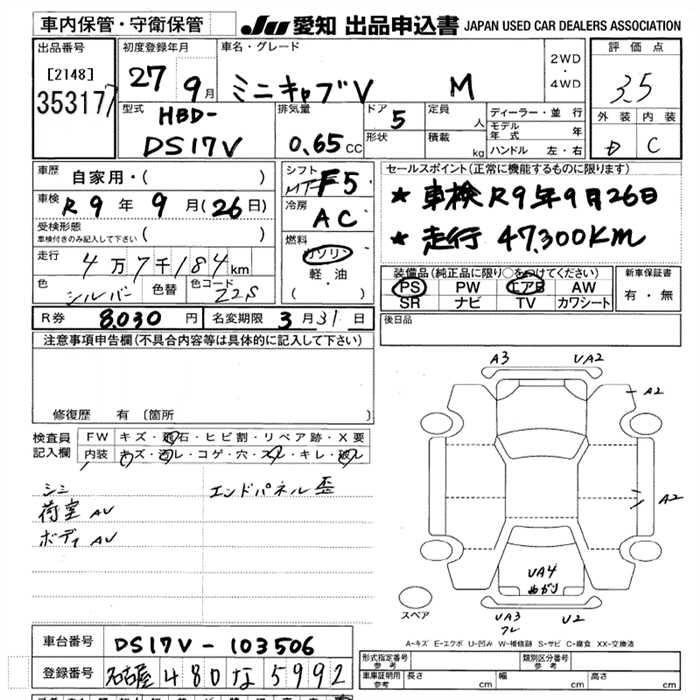 車内保管・守衛保管
JU 愛知 出品申込書 JAPAN USED CAR DEALERS ASSOCIATION
出品番号
[2148]
353177
初度登録年月
27 9月
車名・グレード
ミニキャブV M
2WD
・
4WD
評価点
3.5
外装 内装
D C
型式
HBD-
DS17V
排気量
0.65 CC
ドア
5
形状
定員
人
積載
kg
ディーラー・並行
モデル年式 年
ハンドル 左・右
車歴
自家用・( )
車検
R 9年 9月(26日)
受検形態
車検付きのみ記入して下さい ( )
走行
4万7千184km
色
シルバー
色替
色コード
Z2S
シフト
MT F5
冷房
AC
燃料
ガソリン
・
軽油
( )
セールスポイント(正常に機能するものに限ります)
★ 車検R9年9月26日
★ 走行 47,300KM
装備品(純正品に限り○をつけてください)
PS PW エアB AW
SR ナビ TV カワシート
新車保証書
有・無
R券 8,030円 名変期限 3月31日
後日品
注意事項申告欄(不具合内容等は具体的に記入して下さい)
修復歴 有〔箇所 〕
検査員
記入欄
FW キズ・飛石・ヒビ割・リペア跡・X要
内装 キズ・汚レ・コゲ・穴・スレ・キレ・破レ
荷室 AU
ボディ AU
エンドパネル歪
A3 UA2
A2
A2
UA4
ぬがり
スペア
UA3 U2
A-キズ E-エクボ U-凹み W-補修跡 S-サビ C-腐食 XX-交換済
車台番号 DS17V-103506
登録番号 名古屋 480 な 5992
形式指定番号
参考
類別区分番号
参考
車庫証明用
参考
長さ cm 幅 cm 高さ cm